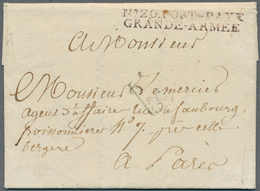 No 20. PORT-PAYÉ
GRANDE-ARMÉE
A Monsieur
Monsieur Temeries
agent d'affaire rue du faubourg
poissonniere No 7. pres celle
bergere
a Paris